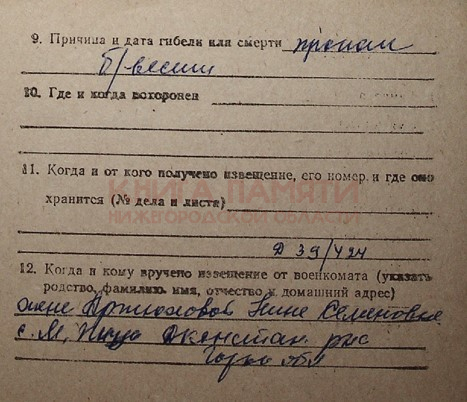 9. Причина и дата гибели или смерти пропал
б/вести
10. Где и когда похоронен
11. Когда и от кого получено извещение, его номер и где оно
хранится (№ дела и листа)
КНИГА ПАМЯТИ
НИЖЕГОРОДСКОЙ ОБЛАСТИ
Д 39/424
12. Когда и кому вручено извещение от военкомата (указать
родство, фамилию, имя, отчество и домашний адрес)
жене Нине Семеновне
с. М.